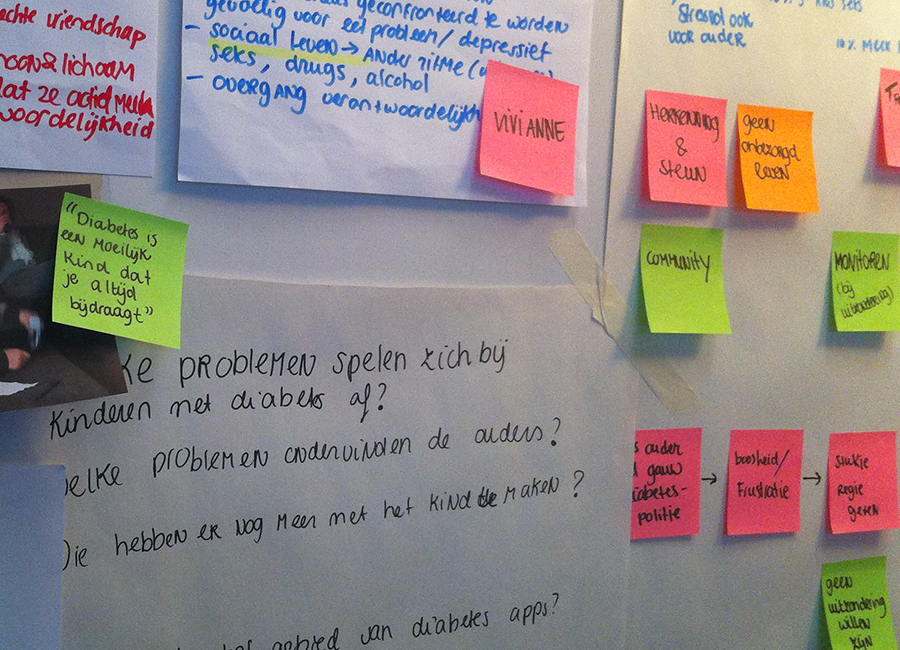 echte vriendschap
lichaam
dat ze
woordelijkheid
geconfronteerd te worden
gevoelig voor een probleem/depressief
- sociaal leven → Ander ritme
seks, drugs, alcohol
- overgang verantwoordelijkh
VIVIANNE
stressvol ook
voor ouder
10% MEER
HERKENNING
&
STEUN
geen
onbezorgd
leven
COMMUNITY
MONITOREN
(bij
"Diabetes is
een moeilijk
kind dat
je altijd
bijdraagt"
ke PROBLEMEN spelen zich bij
Kinderen met diabetes af?
elke PROBLEMEN ondervinden de ouders?
Die hebben er nog meer met het kind te MAKEN?
gebied van diabetes apps?
ouder
gauw
diabetes-
politie
→
boosheid/
Frustratie
→
stukje
Regie
geven
geen
uitzondering
willen
zijn